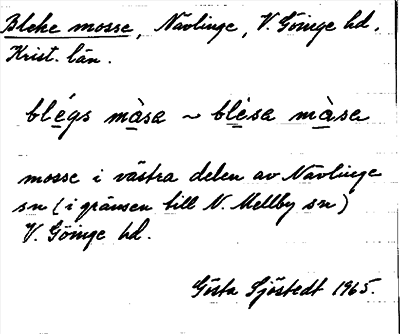 Bleke mosse, Nävlinge, V. Göinge hd.
Krist. län.
blégs màsa ~ blèsa màsa
mosse i västra delen av Nävlinge
sn (i gränsen till N. Mellby sn)
V. Göinge hd.
Gösta Sjöstedt 1965.